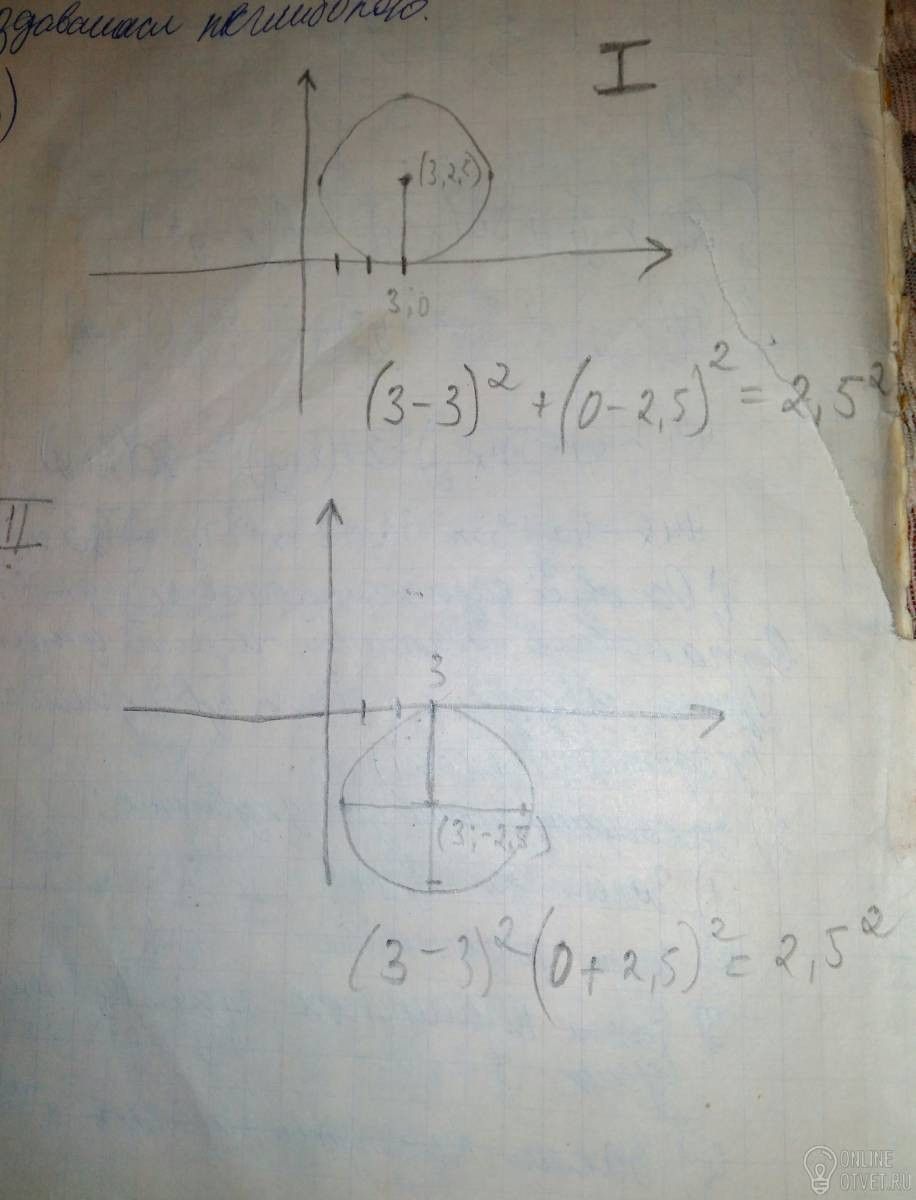 I
(3, 2,5)
3;0
(3-3)² + (0-2,5)² = 2,5²
II
3
(3;-2,5)
(3-3)² (0+2,5)² = 2,5²
ONLINE
OTVET.RU